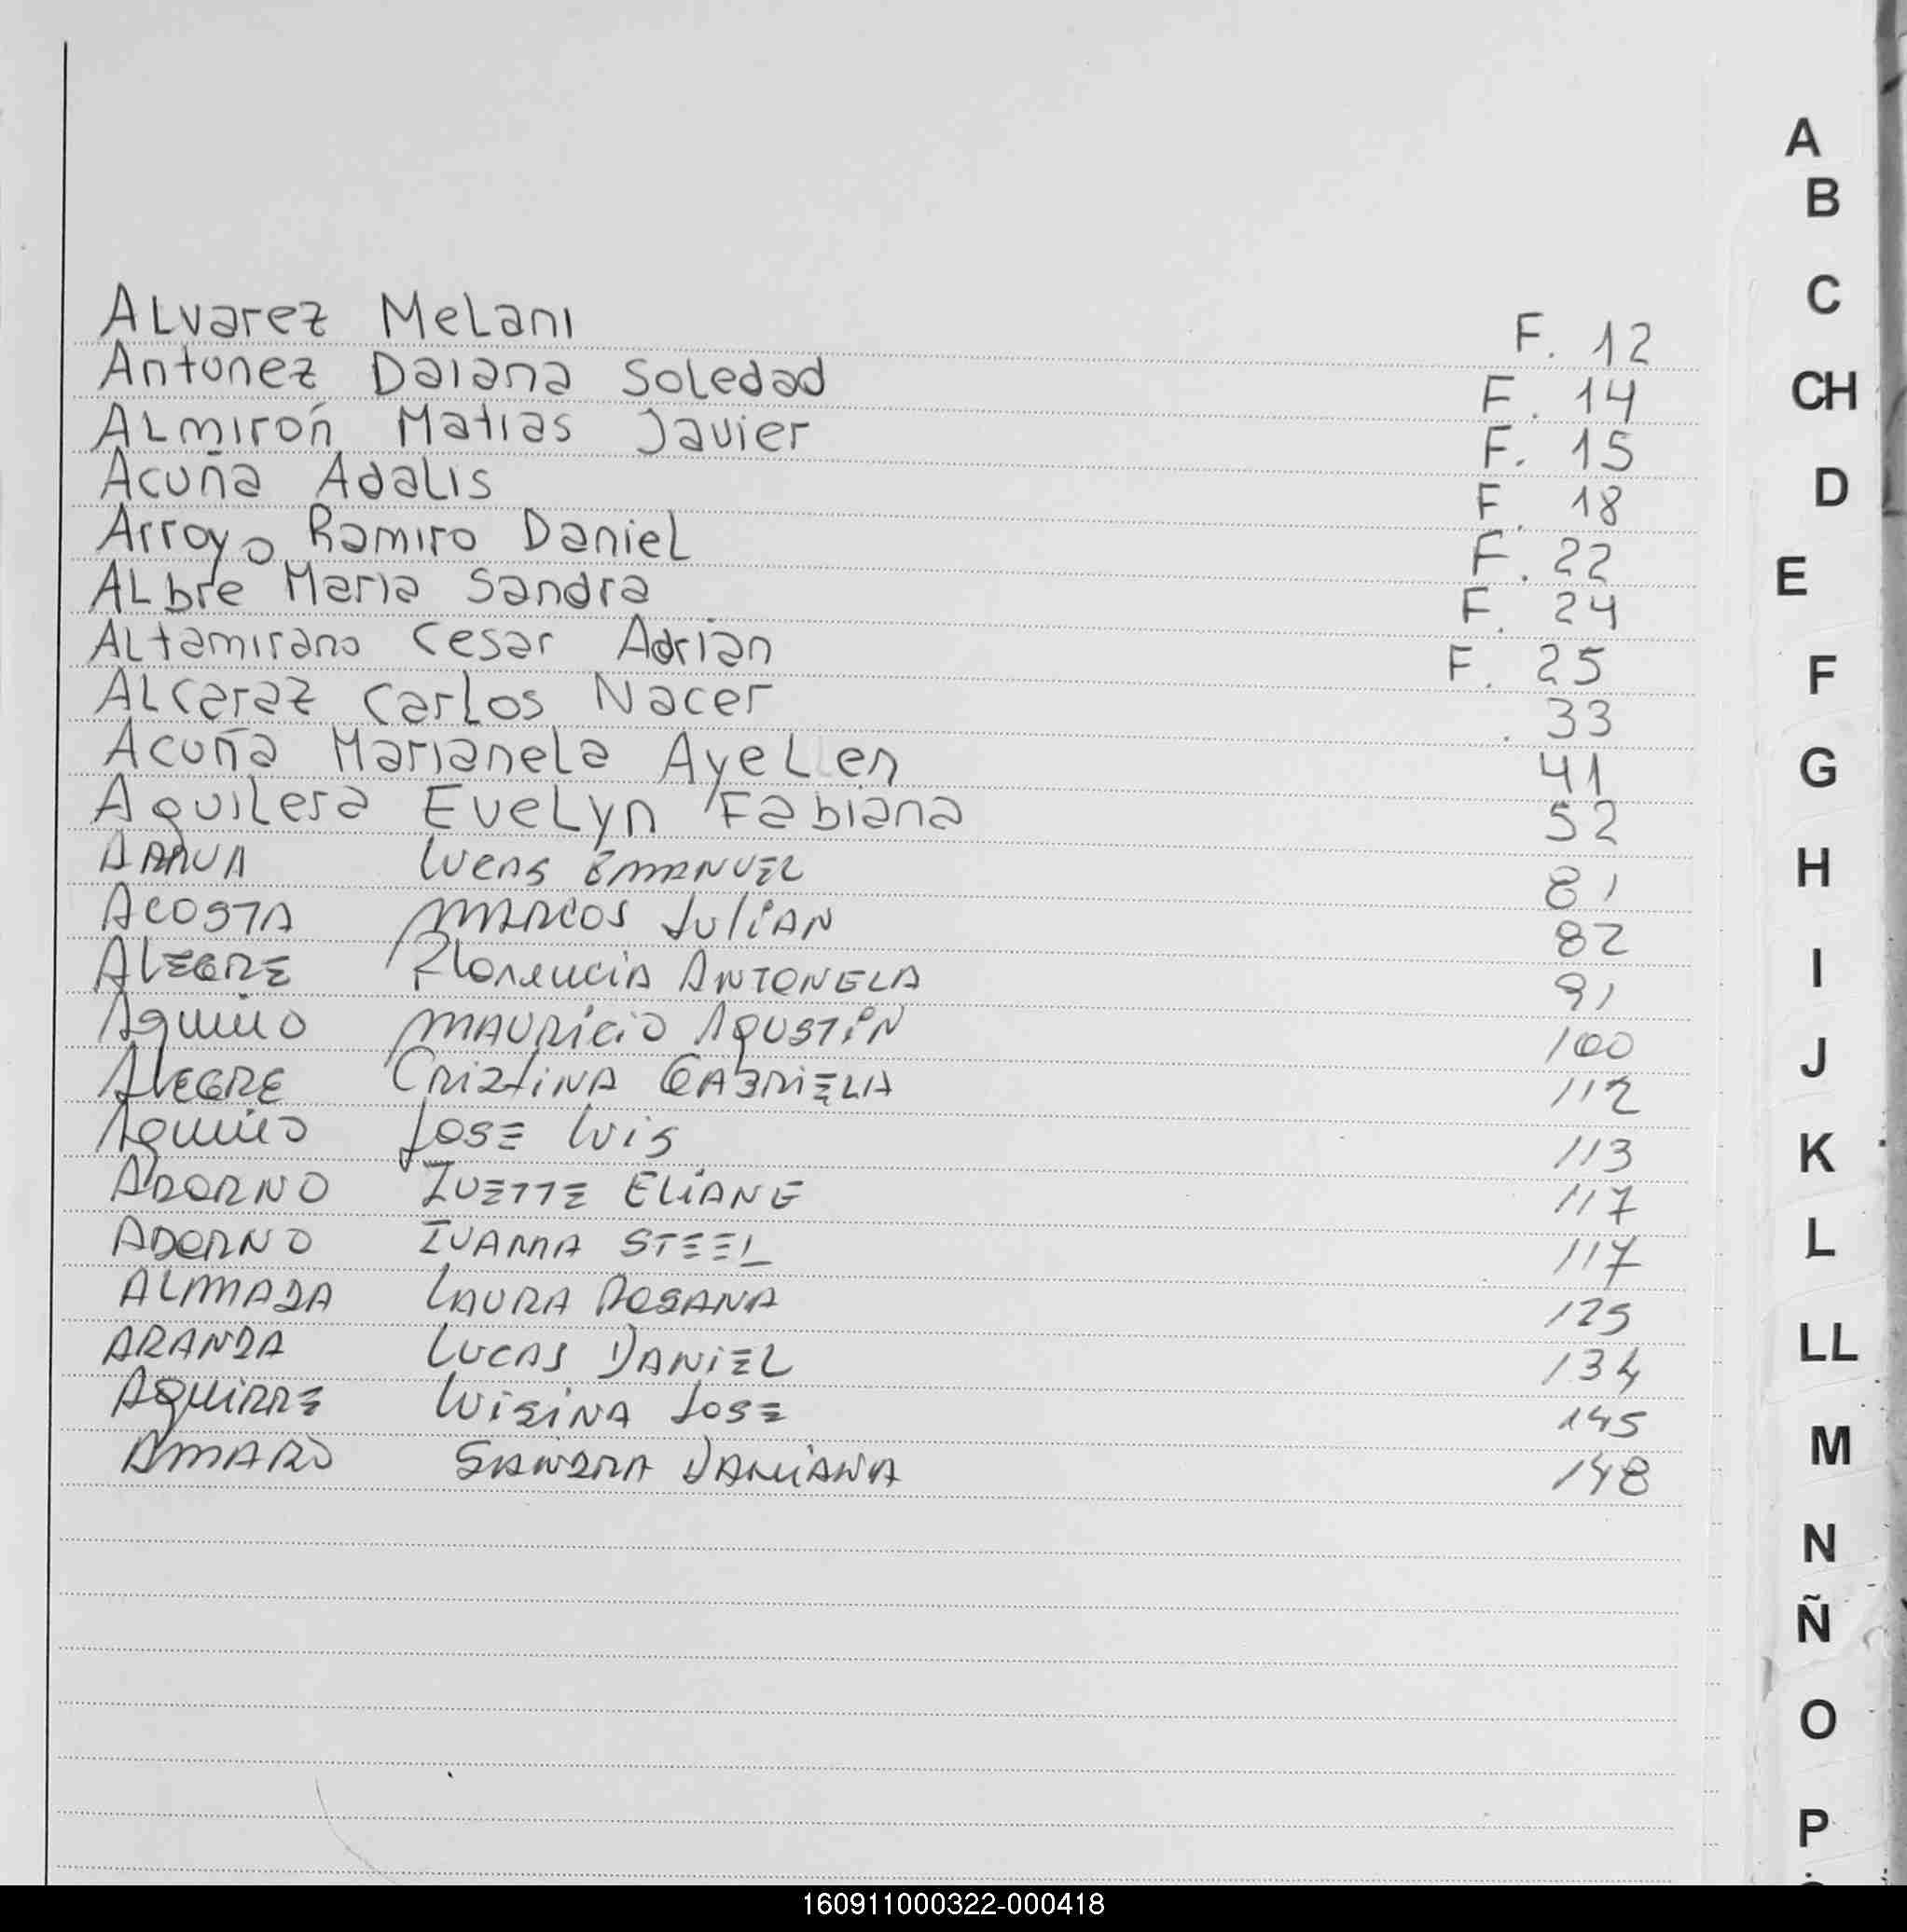 Alvarez Melani F. 12
Antunez Daiana Soledad F. 14
Almirón Matias Javier F. 15
Acuña Adalis F. 18
Arroyo Ramiro Daniel F. 22
Albre Maria Sandra F. 24
Altamirano Cesar Adrián F. 25
Alcaraz Carlos Nacer . 33
Acuña Marianela Ayelen 41
Aguilera Evelyn Fabiana 52
LUCAS EMANUEL 81
ACOSTA MARCOS JULIAN 82
ALEGRE Florencia ANTONELA 91
Aquino MAURICIO AGUSTIN 100
ALEGRE CRIZTINA GABRIELA 112
Aquino JOSE LUIS 113
ADORNO IVETTE ELIANE 117
ADORNO IVANNA STEEL 117
ALMADA LAURA ROSANA 125
ARANDA LUCAS DANIEL 134
AGUIRRE LUISINA JOSE 145
AMARO SANDRA DAMIANA 148
A
B
C
CH
D
E
F
G
H
I
J
K
L
LL
M
N
Ñ
O
P
160911000322-000418